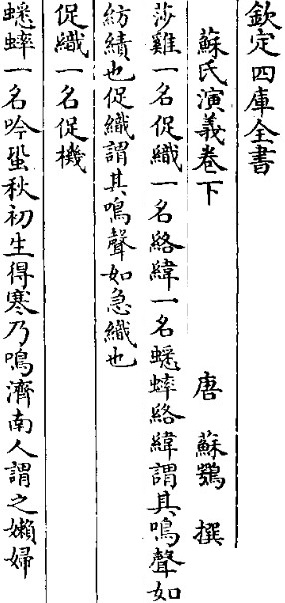 欽定四庫全書
蘇氏演義卷下 唐 蘇鶚 撰
莎雞一名促織一名絡緯一名蟋蟀絡緯謂其鳴聲如
紡績也促織謂其鳴聲如急織也
促織一名促機
蟋蟀一名吟蛩秋初生得寒乃鳴濟南人謂之嬾婦